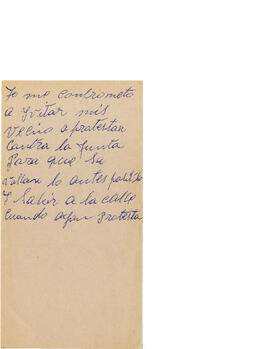 Yo me combrometo
a Yvitar mis
Vecino a protestar
Contra la Junta
Para que Se
Vallan lo antes posible
Y Salir a la calle
Cuando aygan Protesta